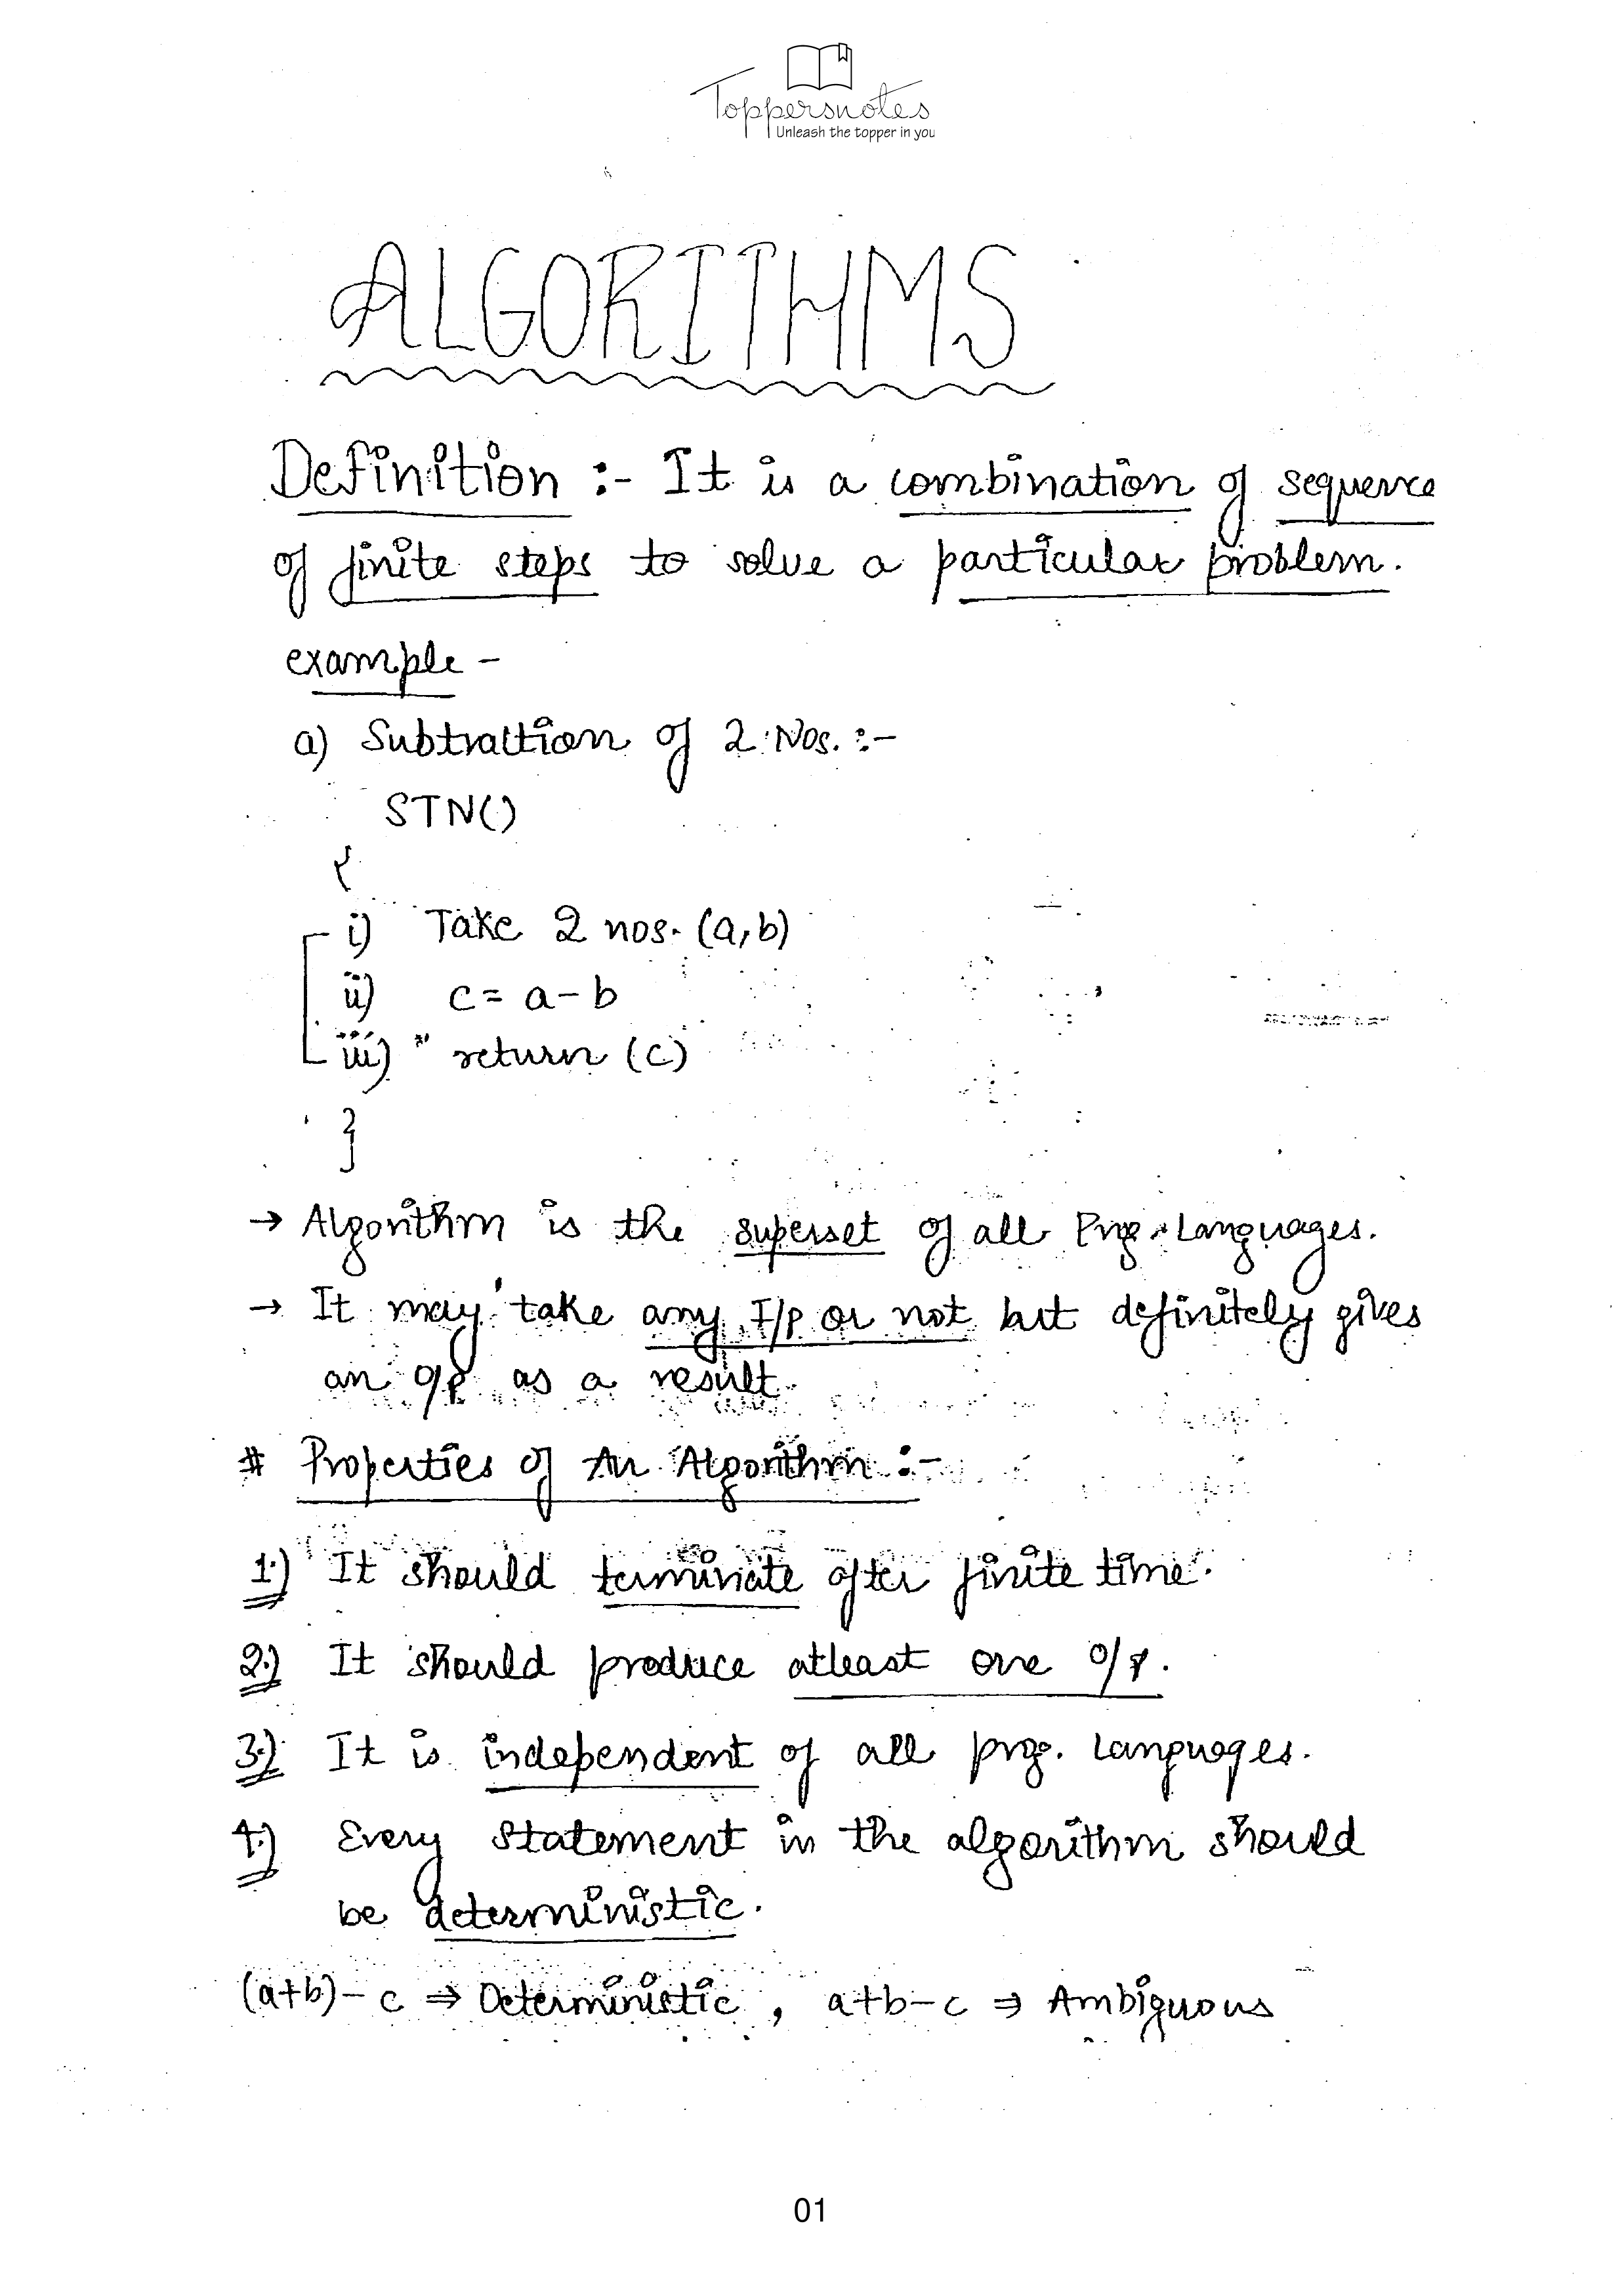 Toppersnotes
Unleash the topper in you
ALGORITHMS
Definition :- It is a combination of sequence
of finite steps to solve a particular problem.
example -
a) Subtraction of 2 Nos. :-
STN()
{
i) Take 2 nos. (a,b)
ii) c = a - b
iii) return (c)
}
→ Algorithm is the superset of all Prg. Languages.
→ It may take any I/p or not but definitely gives
an o/p as a result.
# Properties of An Algorithm :-
1.) It should terminate after finite time.
2.) It should produce atleast one o/p.
3.) It is independent of all prg. languages.
4.) Every statement in the algorithm should
be deterministic.
(a+b) - c ⇒ Deterministic , a+b-c ⇒ Ambiguous
01